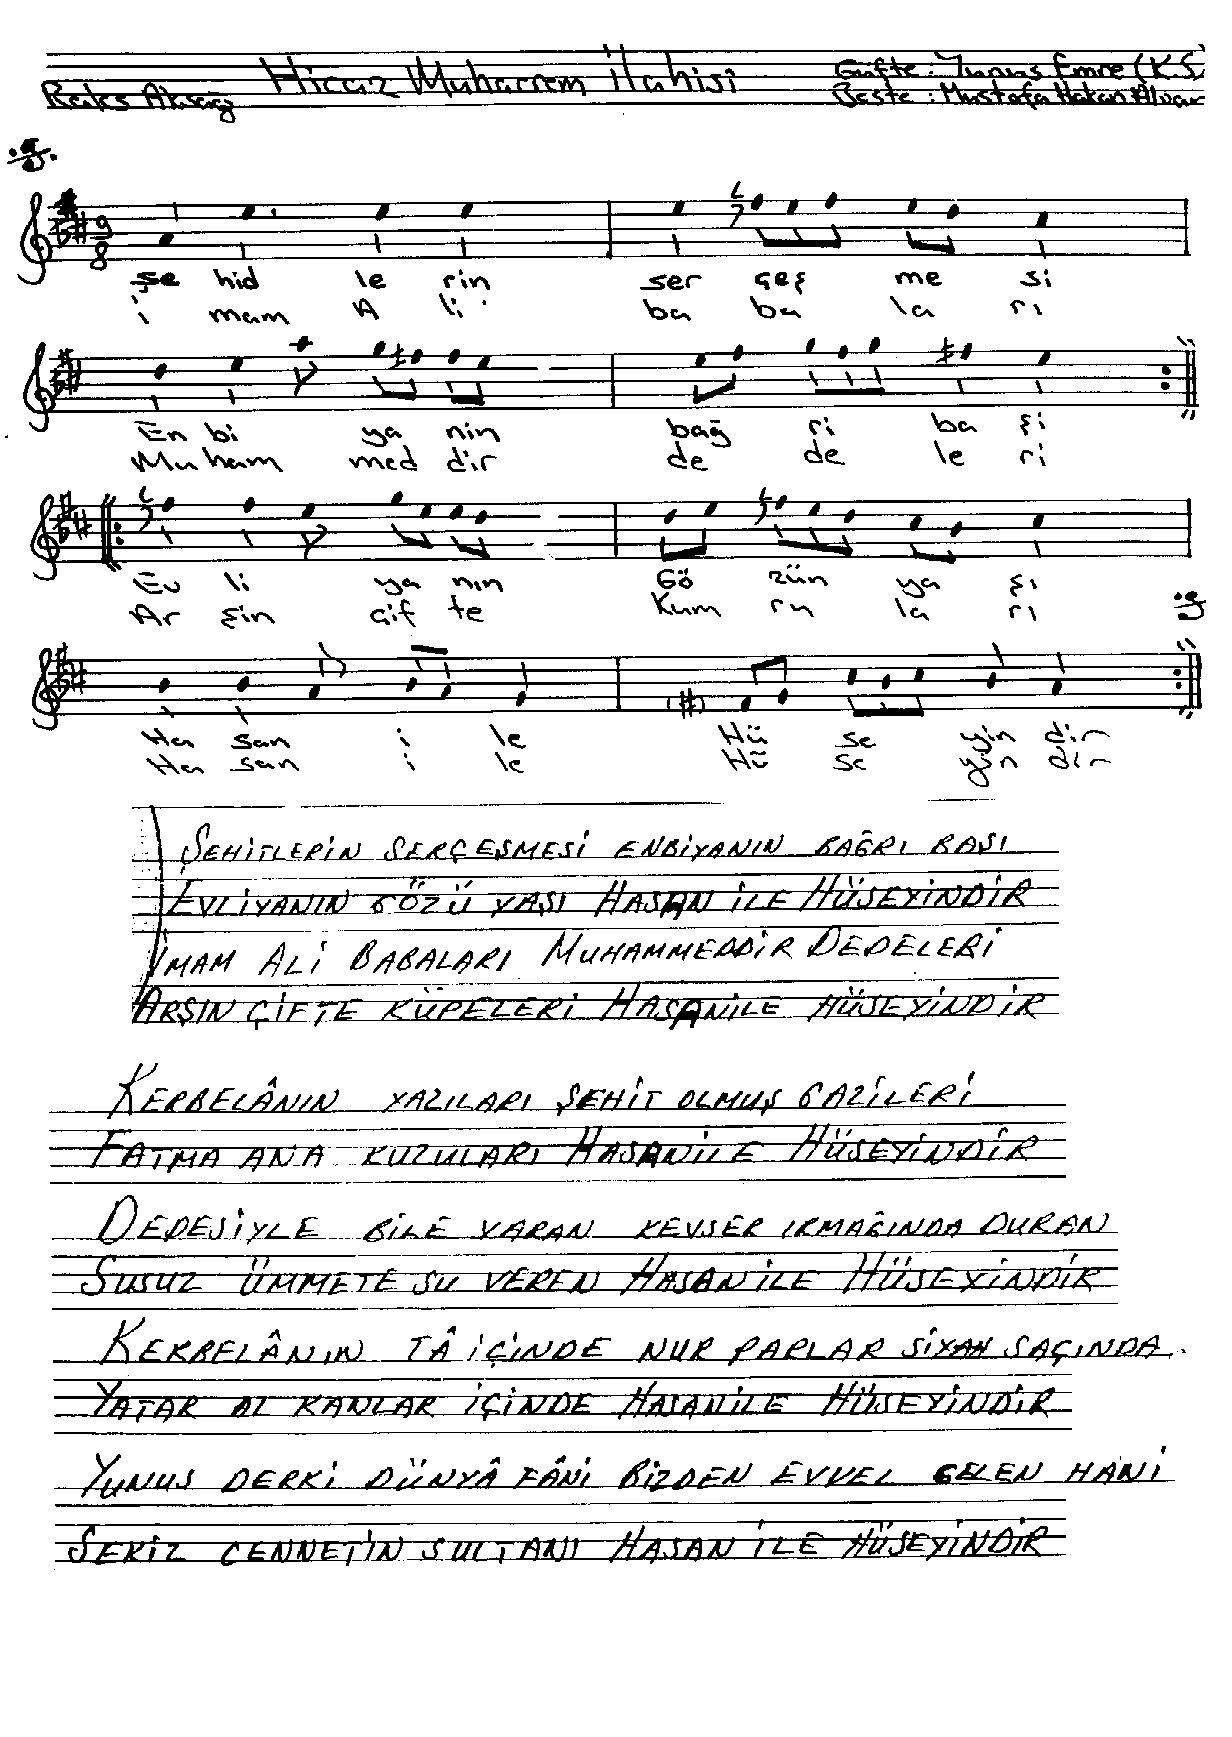 Hicaz Muharrem ilahisi
Güfte: Yunus Emre (K.S)
Raks Aksağı
Beste: Mustafa Hakan Alvan
9/8
Şe hid le rin ser çeş me si
i mam A li ba ba la rı
En bi ya nin bağ ri ba şi
Mu ham med dir de de le ri
Ev li ya nın Gö zün ya şı
Ar şin çif te Kum ru la rı
Ha san i le Hü se yin dir
Ha san i le Hü se yin dir
ŞEHİTLERİN SERÇEŞMESİ ENBİYANIN BAĞRI BAŞI
EVLİYANIN GÖZÜ YAŞI HASAN İLE HÜSEYİNDİR
İMAM ALİ BABALARI MUHAMMEDDİR DEDELERİ
ARŞIN ÇİFTE KÜPELERİ HASANİLE HÜSEYİNDİR
KERBELÂNIN YAZILARI ŞEHİT OLMUŞ GAZİLERİ
FATMA ANA KUZULARI HASANİLE HÜSEYİNDİR
DEDESİYLE BİLE VARAN KEVSER IRMAĞINDA DURAN
SUSUZ ÜMMETE SU VEREN HASANİLE HÜSEYİNDİR
KERBELÂNIN TÂ İÇİNDE NUR PARLAR SİYAH SAÇINDA
YATAR AL KANLAR İÇİNDE HASANİLE HÜSEYİNDİR
YUNUS DERKİ DÜNYÂ FÂNİ BİZDEN EVVEL GELEN HANİ
SEKİZ CENNETİN SULTANI HASAN İLE HÜSEYİNDİR